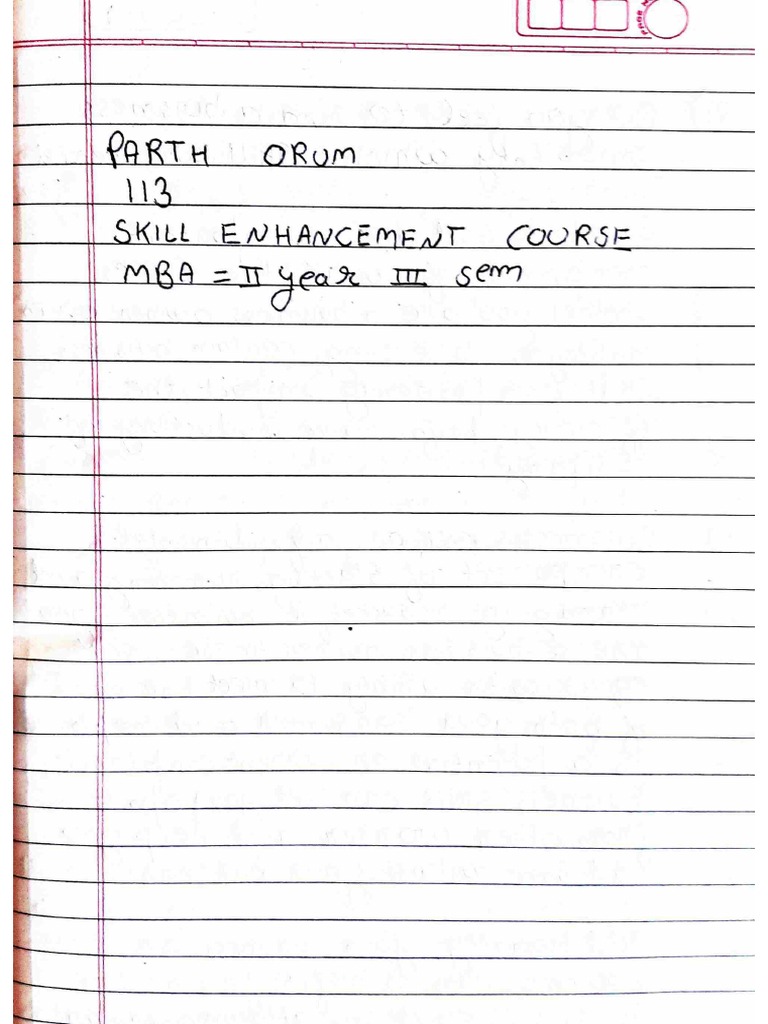 PARTH ORUM
113
SKILL ENHANCEMENT COURSE
MBA = II year III sem